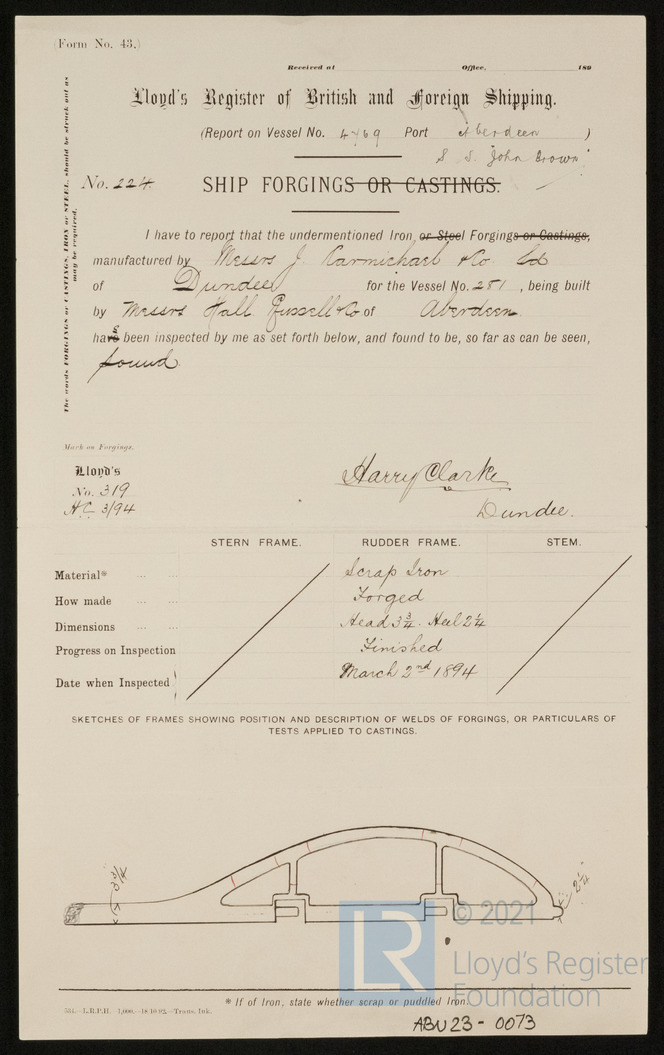 (Form No. 43.)
Received at Office, 189
Lloyd's Register of British and Foreign Shipping.
(Report on Vessel No. 4769 Port Aberdeen )
S. S. "John Brown"
No. 224. SHIP FORGINGS OR CASTINGS.
The words FORGINGS or CASTINGS, IRON or STEEL, should be struck out as
may be required.
I have to report that the undermentioned Iron or Steel Forgings or Castings,
manufactured by Messrs J. Carmichael & Co. Ld
of Dundee for the Vessel No. 281, being built
by Messrs Hall Russell & Co of Aberdeen
have been inspected by me as set forth below, and found to be, so far as can be seen,
sound
Mark on Forgings.
Lloyd's
No. 319
H.C. 3/94
Harry Clarke
Dundee.
STERN FRAME. RUDDER FRAME. STEM.
Material* ... ... Scrap Iron
How made ... ... Forged
Dimensions ... ... Head 3 3/4. Heel 2 1/4
Progress on Inspection Finished
Date when Inspected March 2nd 1894
SKETCHES OF FRAMES SHOWING POSITION AND DESCRIPTION OF WELDS OF FORGINGS, OR PARTICULARS OF
TESTS APPLIED TO CASTINGS.
3 3/4
2 1/4
LR
© 2021
Lloyd's Register
Foundation
* If of Iron, state whether scrap or puddled Iron.
534.—L.R.P.H. 1,000.—18.10.92.—Trans. Ink.
ABN23-0073